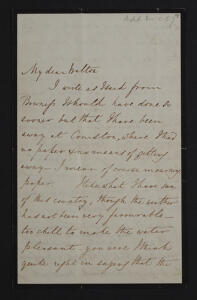 My dear Walter
I write as I said from
Bowness I should have done so
sooner but that I have been
away at Coniston, where I had
no paper & no means of getting
away. I mean of course mourning
paper. I like what I have seen
of this country, though the weather
has not been very favourable
too chill to make the water
pleasant. you were I think
quite right in saying that the